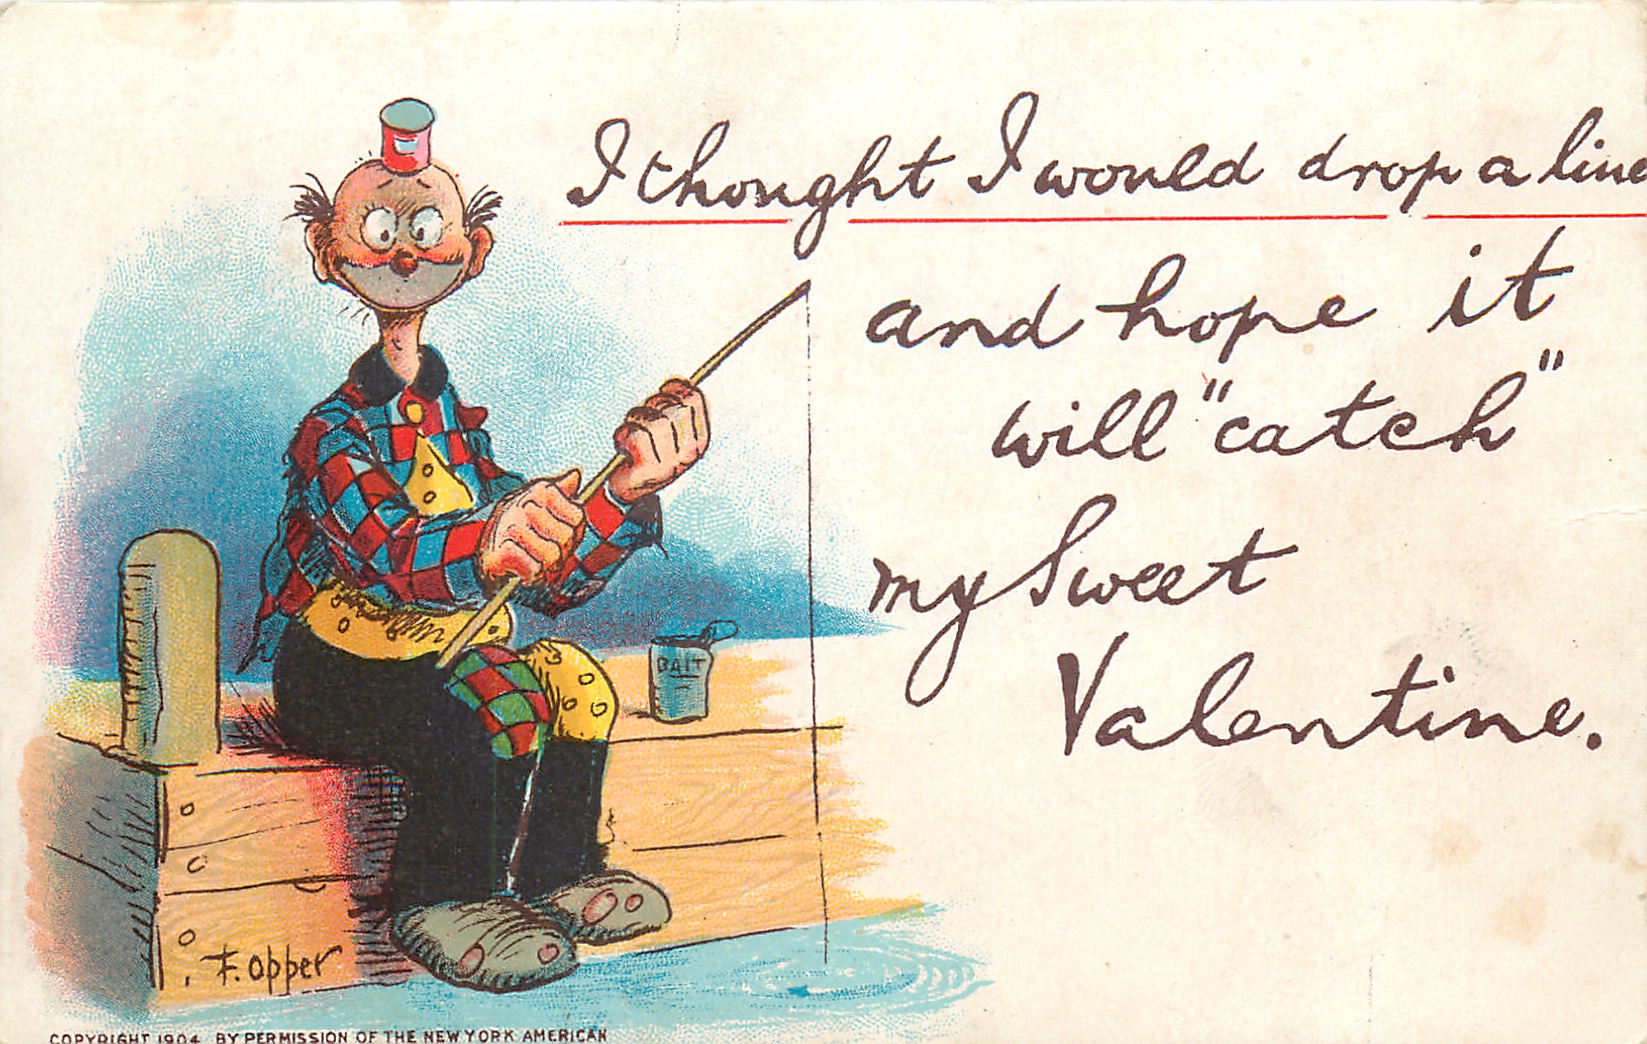 I thought I would drop a line
and hope it
will "catch"
my Sweet
Valentine.
BAIT
F. Opper
COPYRIGHT 1904 BY PERMISSION OF THE NEW YORK AMERICAN